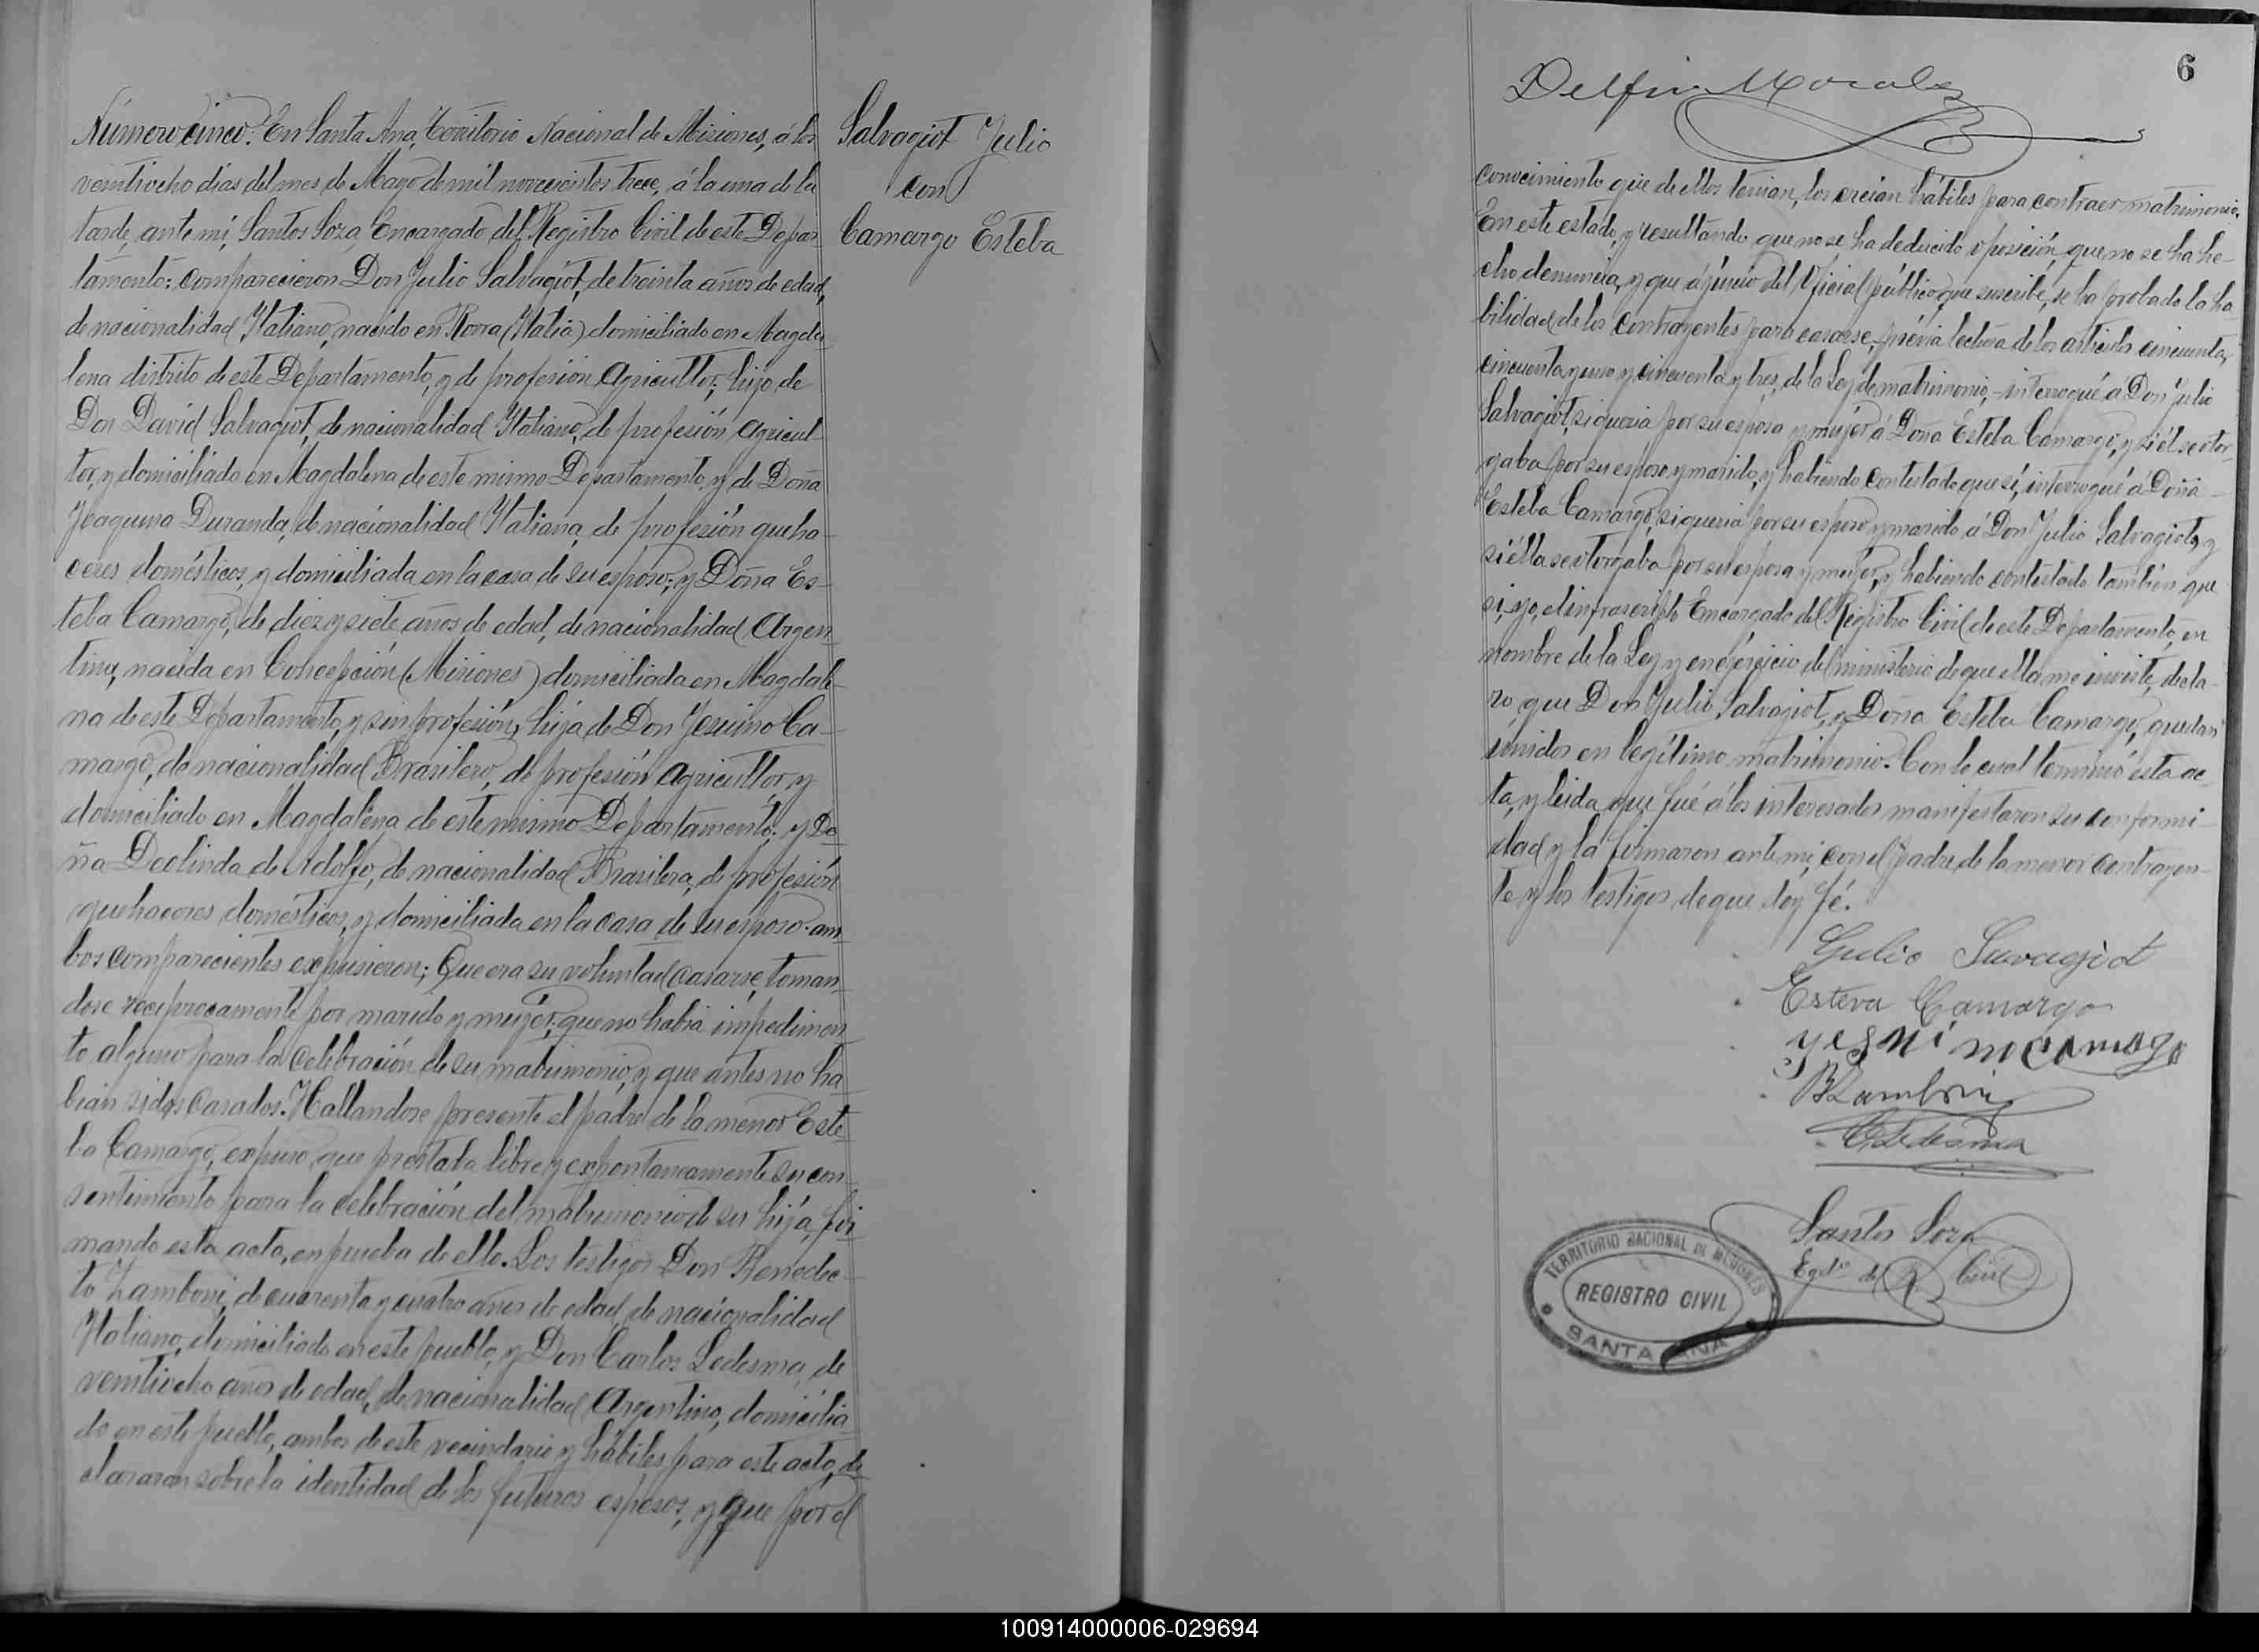 Número cinco. En Santa Ana, Territorio Nacional de Misiones, á los
veintiocho días del mes de Mayo de mil novecientos trece, á la una de la
tarde, ante mí, Santos Soza, Encargado del Registro Civil de este Depar
tamento: comparecieron Don Julio Salvagiot, de treinta años de edad,
de nacionalidad Italiano, nacido en Rorra (Italia) domiciliado en Magda
lena distrito de este Departamento, y de profesión agricultor; hijo de
Don David Salvagiot, de nacionalidad Italiano, de profesión agricul-
tor, y domiciliado en Magdalena de este mismo Departamento y de Doña
Joaquina Duranda, de nacionalidad Italiana, de profesión queha-
ceres domésticos, y domiciliada en la casa de su esposo; y Doña Es-
teba Camargo, de diez y siete años de edad, de nacionalidad Argen
tina, nacida en Concepción (Misiones) domiciliada en Magdale-
na de este Departamento, y sin profesión, hija de Don Jesuino Ca-
margo, de nacionalidad Brasilero, de profesión agricultor, y
domiciliado en Magdalena de este mismo Departamento; y Do
ña Deolinda de Adolfo, de nacionalidad Brasilera, de profesión
quehaceres domésticos, y domiciliada en la casa de su esposo. am
bos comparecientes expusieron; Que era su voluntad casarse, toman-
dose reciprocamente por marido y mujer; que no habia impedimen
to alguno para la celebración de su matrimonio, y que antes no ha
bian sidos casados. Hallandose presente el padre de la menor Este
ba Camargo, expuso que prestaba libre y expontaneamente su con
sentimiento para la celebración del matrimonio de su hija, fir
mando esta acta, en prueba de ello. Los testigos Don Benedic-
to Zamboni, de cuarenta y cuatro años de edad, de nacionalidad
Italiano, domiciliado en este pueblo, y Don Carlos Ledesma, de
veintiocho años de edad, de nacionalidad Argentino, domicilia
do en este pueblo, ambos de este vecindario y hábiles para este acto, de
clararon sobre la identidad de los futuros esposos, y que por el
Salvagiot Julio
con
Camargo Esteba
6
Delfin Morales
conocimiento que de ellos tenian, los creian hábiles para contraer matrimonio.
En este estado, y resultando que no se ha deducido oposición, que no se ha he-
cho denuncia, y que á juicio del Oficial público que suscribe, se ha probado la ha
bilidad de los contrayentes para casarse, - prévia lectura de los artículos cincuenta,
cincuenta y uno y cincuenta y tres, de la Ley de matrimonio, - interrogué á Don Julio
Salvagiot, si queria por su esposa y mujer á Doña Esteba Camargo, y si él se otor-
gaba por su esposo y marido, y habiendo contestado que sí, interrogué á Doña
Esteba Camargo, si queria por su esposo y marido á Don Julio Salvagiot, y
si élla se otorgaba por su esposa y mujer, y habiendo contestado tambien que
si, yo, el infrascripto Encargado del Registro Civil de este Departamento, en
nombre de la Ley y en ejercicio del ministerio de que ella me inviste, decla-
ro, que Don Julio Salvagiot, y Doña Esteba Camargo, quedan
únidos en legítimo matrimonio. Con lo cual terminó esta ac-
ta, y leida que fué á los interesados manifestaron su conformi-
dad y la firmaron ante mí, con el padre de la menor contrayen-
te y los testigos de que doy fé.
Gulio Savagiot
Esteva Camargo
yesui no Camago
B Zamboni
C Ledesma
Santos Soza
Egdo del R. Civil
TERRITORIO NACIONAL DE MISIONES
REGISTRO CIVIL
SANTA ANA
100914000006-029694